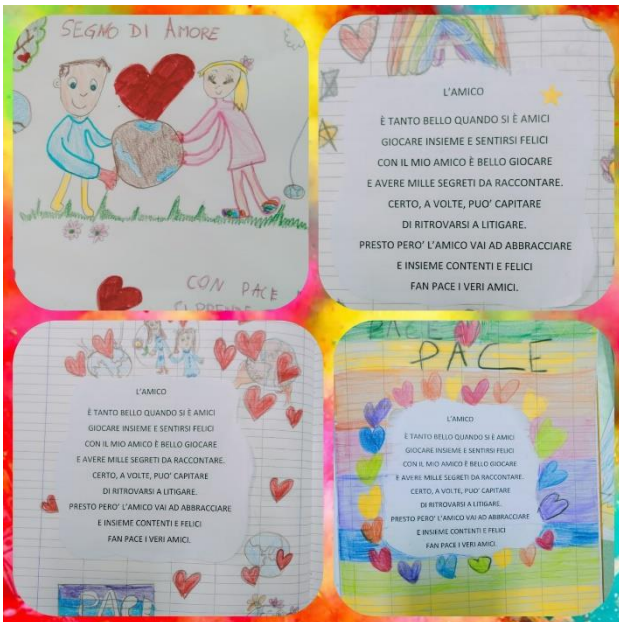 SEGNO DI AMORE
CON PACE
SI PRENDE
L'AMICO
È TANTO BELLO QUANDO SI È AMICI
GIOCARE INSIEME E SENTIRSI FELICI
CON IL MIO AMICO È BELLO GIOCARE
E AVERE MILLE SEGRETI DA RACCONTARE.
CERTO, A VOLTE, PUO' CAPITARE
DI RITROVARSI A LITIGARE.
PRESTO PERO' L'AMICO VAI AD ABBRACCIARE
E INSIEME CONTENTI E FELICI
FAN PACE I VERI AMICI.
L'AMICO
È TANTO BELLO QUANDO SI È AMICI
GIOCARE INSIEME E SENTIRSI FELICI
CON IL MIO AMICO È BELLO GIOCARE
E AVERE MILLE SEGRETI DA RACCONTARE.
CERTO, A VOLTE, PUO' CAPITARE
DI RITROVARSI A LITIGARE.
PRESTO PERO' L'AMICO VAI AD ABBRACCIARE
E INSIEME CONTENTI E FELICI
FAN PACE I VERI AMICI.
PACE
PACE
PACE
L'AMICO
È TANTO BELLO QUANDO SI È AMICI
GIOCARE INSIEME E SENTIRSI FELICI
CON IL MIO AMICO È BELLO GIOCARE
E AVERE MILLE SEGRETI DA RACCONTARE.
CERTO, A VOLTE, PUO' CAPITARE
DI RITROVARSI A LITIGARE.
PRESTO PERO' L'AMICO VAI AD ABBRACCIARE
E INSIEME CONTENTI E FELICI
FAN PACE I VERI AMICI.